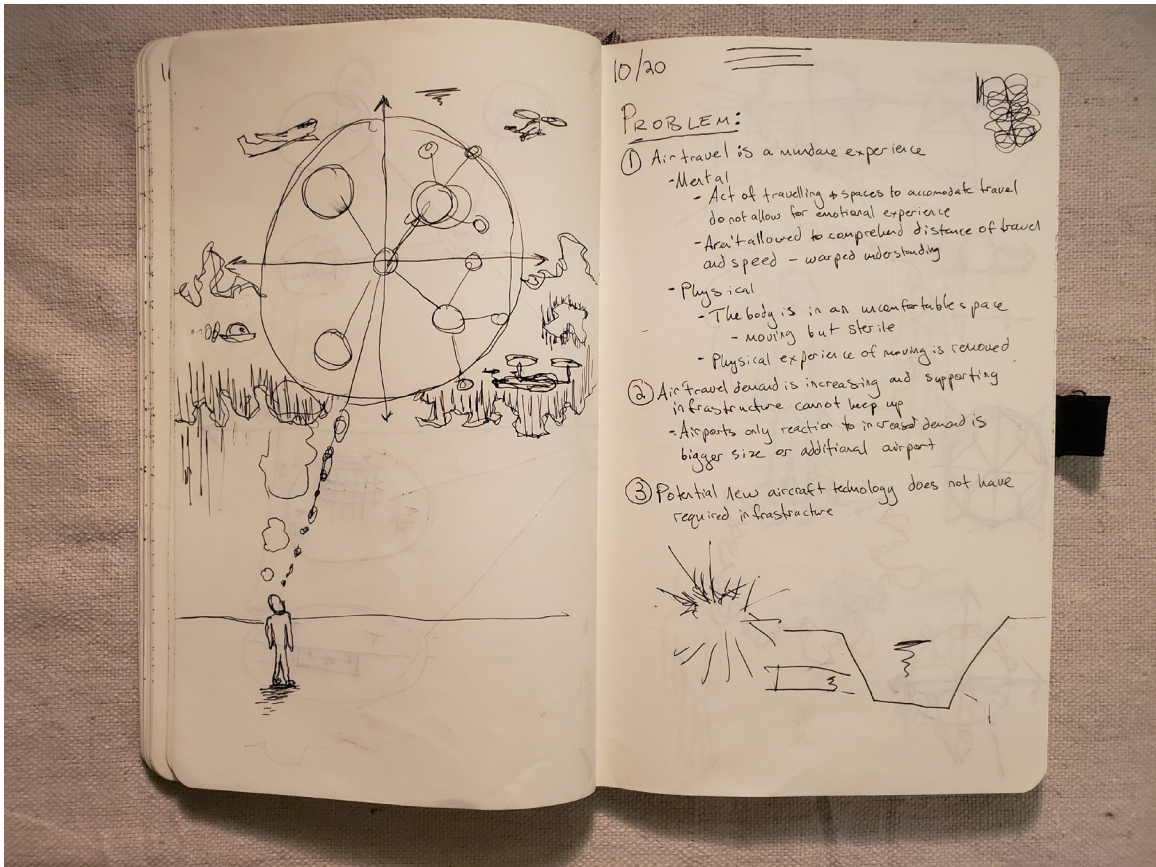 10/20
PROBLEM:
① Air travel is a mundane experience
- Mental
- Act of travelling + spaces to accomodate travel
do not allow for emotional experience
- Aren't allowed to comprehend distance of travel
and speed - warped understanding
- Physical
- The body is in an uncomfortable space
- moving but sterile
- Physical experience of moving is removed
② Air travel demand is increasing and supporting
infrastructure cannot keep up
- Airports only reaction to increased demand is
bigger size or additional airport
③ Potential new aircraft technology does not have
required infrastructure